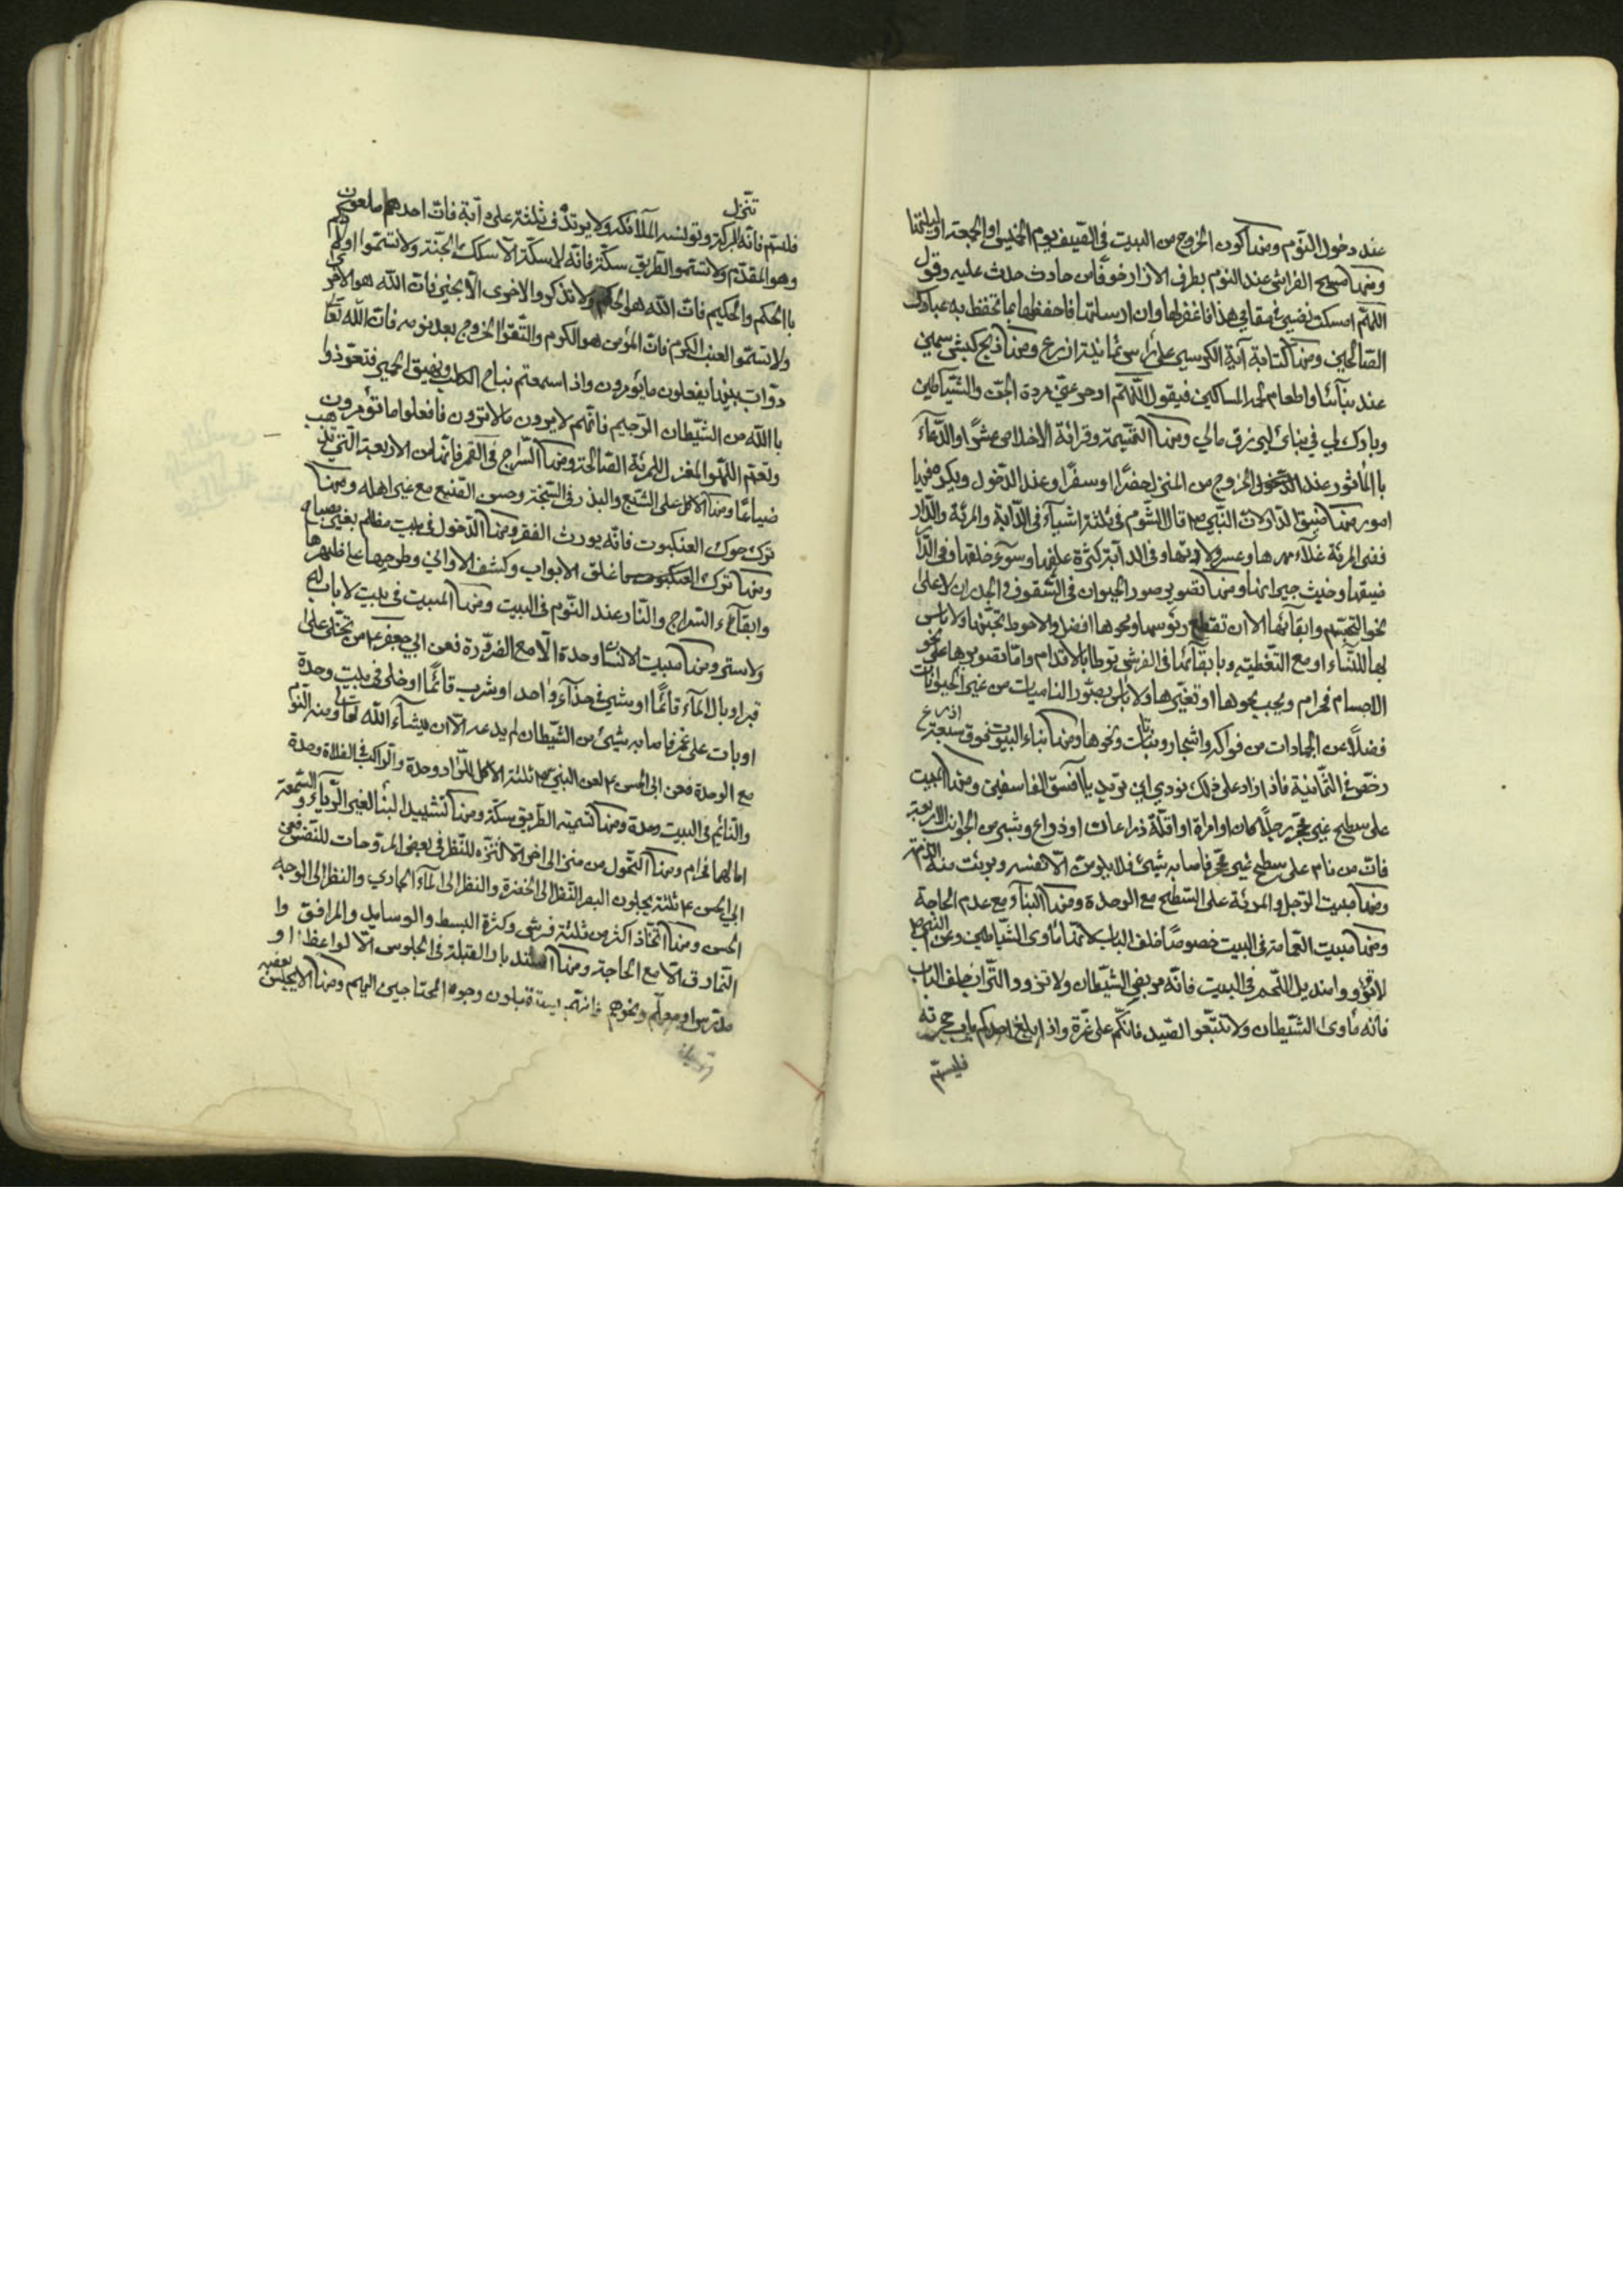 عند دخول النّوم ومنها كون الخروج من البيت في الصّيف يوم الخميس او الجمعة او ليلتها
ومنها مسح الفراش عند النوم بطرف الازار خوفًا من حادث حدث عليه وقول
اللهمّ امسكت نفسي في مقامي هذا فاغفر لها وان ارسلتها فاحفظها بما تحفظ به عبادك
الصّالحين ومنها كتابة آية الكرسي على رأس ثمانية اذرع ومنها ذبح كبش سمين
عند بنآئها واطعام لحمه المساكين فيقول اللّهمّ ادحر عنّي مردة الجنّ والشّياطين
وبارك لي في بنائي ليرزق مالي ومنها التّسمية وقرائة الاخلاص عشرًا والدّعآء
بالمأثور عند الخروج من المنزل حضرًا او سفرًا وعند الدّخول ويكره فيها
امور منها ضيق الدّار لانّ النّبي ص قال الشّوم في ثلثة اشيآء في الدّآبة والمرئة والدّار
ففي المرئة غلآء مهرها وعسر ولادتها وفي الدآبة كثرة عللها وسوء خلقها وفي الدّار
ضيقها وخبث جيرانها ومنها تصوير صور الحيوان في السّقوف والجدران لا على
نحو التجسّم وابقآئها الا ان تقطع رؤسها ومحوها افضل والاحوط تجنّبها ولا بأس
بها للنّسآء او مع التّغطية وبابقآئها في الفرش توطأ بالاقدام وامّا تصويرها على نحو
الاجسام فحرام ويجب محوها او تغييرها ولا بأس بصور الناميات من غير الحيوانات
فضلًا عن الجمادات من فواكه واشجار ونباتات ونحوها ومنها بناء البيت فوق سبعة اذرع
رخّص في الثّمانية فاذا زاد على ذلك نودي اين تريد يا افسق الفاسقين ومنها المبيت
على سطح غير محجّر رجلًا كان او امرأة او اقلّه ذراعان او ذراع وشبر من الجوانب الاربعة
فانّ من نام على سطح غير محجّر فاصابه شيئ فلا يلومنّ الّا نفسه وبرئت منه الذمّة
ومنها مبيت الرّجل والمرئة على السّطح مع الوحدة ومنها البنآء مع عدم الحاجة
ومنها مبيت القمامة في البيت خصوصًا خلف الباب لانّها مأوى الشّياطين وعن النّبي ص
لا تؤووا منديل اللّحم في البيت فانّه مربض الشّيطان ولا تؤووا التّراب خلف الباب
فانّه مأوى الشّيطان ولا تتبّعوا الصّيد فانّكم على غرّة واذا بلغ احدكم باب حجرته
فليسمّ
فليسمّ فانّه للبركة وتؤنسه الملآئكة تنزل ولا يرتدف ثلثة على دآبة فانّ احدهم ملعون
وهو المقدّم ولا تسمّوا الطّريق سكّة فانّه لا سكّة الّا سكك الجنّة ولا تسمّوا اولادكم
بالحكم والحكيم فانّ اللّه هو الحكم ولا تذكروا الاخرى الّا بخير فانّ اللّه هو الاخرى
ولا تسمّوا العنب الكرم فانّ المؤمن هو الكرم واتّقوا الخروج بعد نومه فانّ اللّه تعا
دوّاب يبثّها يفعلون ما يؤمرون واذا سمعتم نباح الكلب ونهيق الحمير فتعوّذوا
باللّه من الشّيطان الرّجيم فانّهم لا يرون ما لا ترون فافعلوا ما تؤمرون
ونعم اللّهو المغزل للمرئة الصّالحة ومنها السّراج في القمر فانّها من الاربعة الّتي تذهب
ضياعًا ومنها الاكل على الشّبع والبذر في السّبخة وحسن الصّنيع مع غير اهله ومنها
ترك حوك العنكبوت فانّه يورث الفقر ومنها الدّخول في بيت مظلم بغير مصباح
ومنها ترك اغلاق الابواب وكشف الاواني وطرحها على ظهرها
وابقآء السّراج والنّار عند النّوم في البيت ومنها المبيت في بيت لا باب له
ولا ستر ومنها مبيت الانسان وحده الّا مع الضّرورة فعن ابي جعفر ع من تخلّى على
قبر او بال قائمًا او بال في مآء قائمًا او مشى في حذآء واحد او شرب قائمًا او خلى في بيت وحده
او بات على غمر فاصابه شيئ من الشّيطان لم يدعه الّا ان يشآء اللّه تعا ومنه النّوم
مع الوحدة فعن ابي الحسن ع لعن النبي ص ثلثة الآكل الزّاد وحده والرّاكب في الفلاة وحده
والنّائم في البيت وحده ومنها تسمية الطّريق سكّة ومنها تشييد البنآء لغير الرّياء والسّمعة
امّا لهما فحرام ومنها التّحول من منزل الى اخر الّا لتنزّه للنّظر في بعض المروّحات للنّفس فعن
ابي الحسن ع ثلثة يجلون البصر النّظر الى الخضرة والنظر الى المآء الجاري والنظر الى الوجه
الحسن ومنها اتّخاذ اكثر من ثلثة فرش وكثرة البسط والوسايد والمرافق وا
لنّمارق الّا مع الحاجة ومنها استدبار القبلة في الجلوس الّا لواعظ او
مدرّس او معلّم ونحوهم فانّهم يستقبلون وجوه المحتاجين اليهم ومنها ان لا يجلس